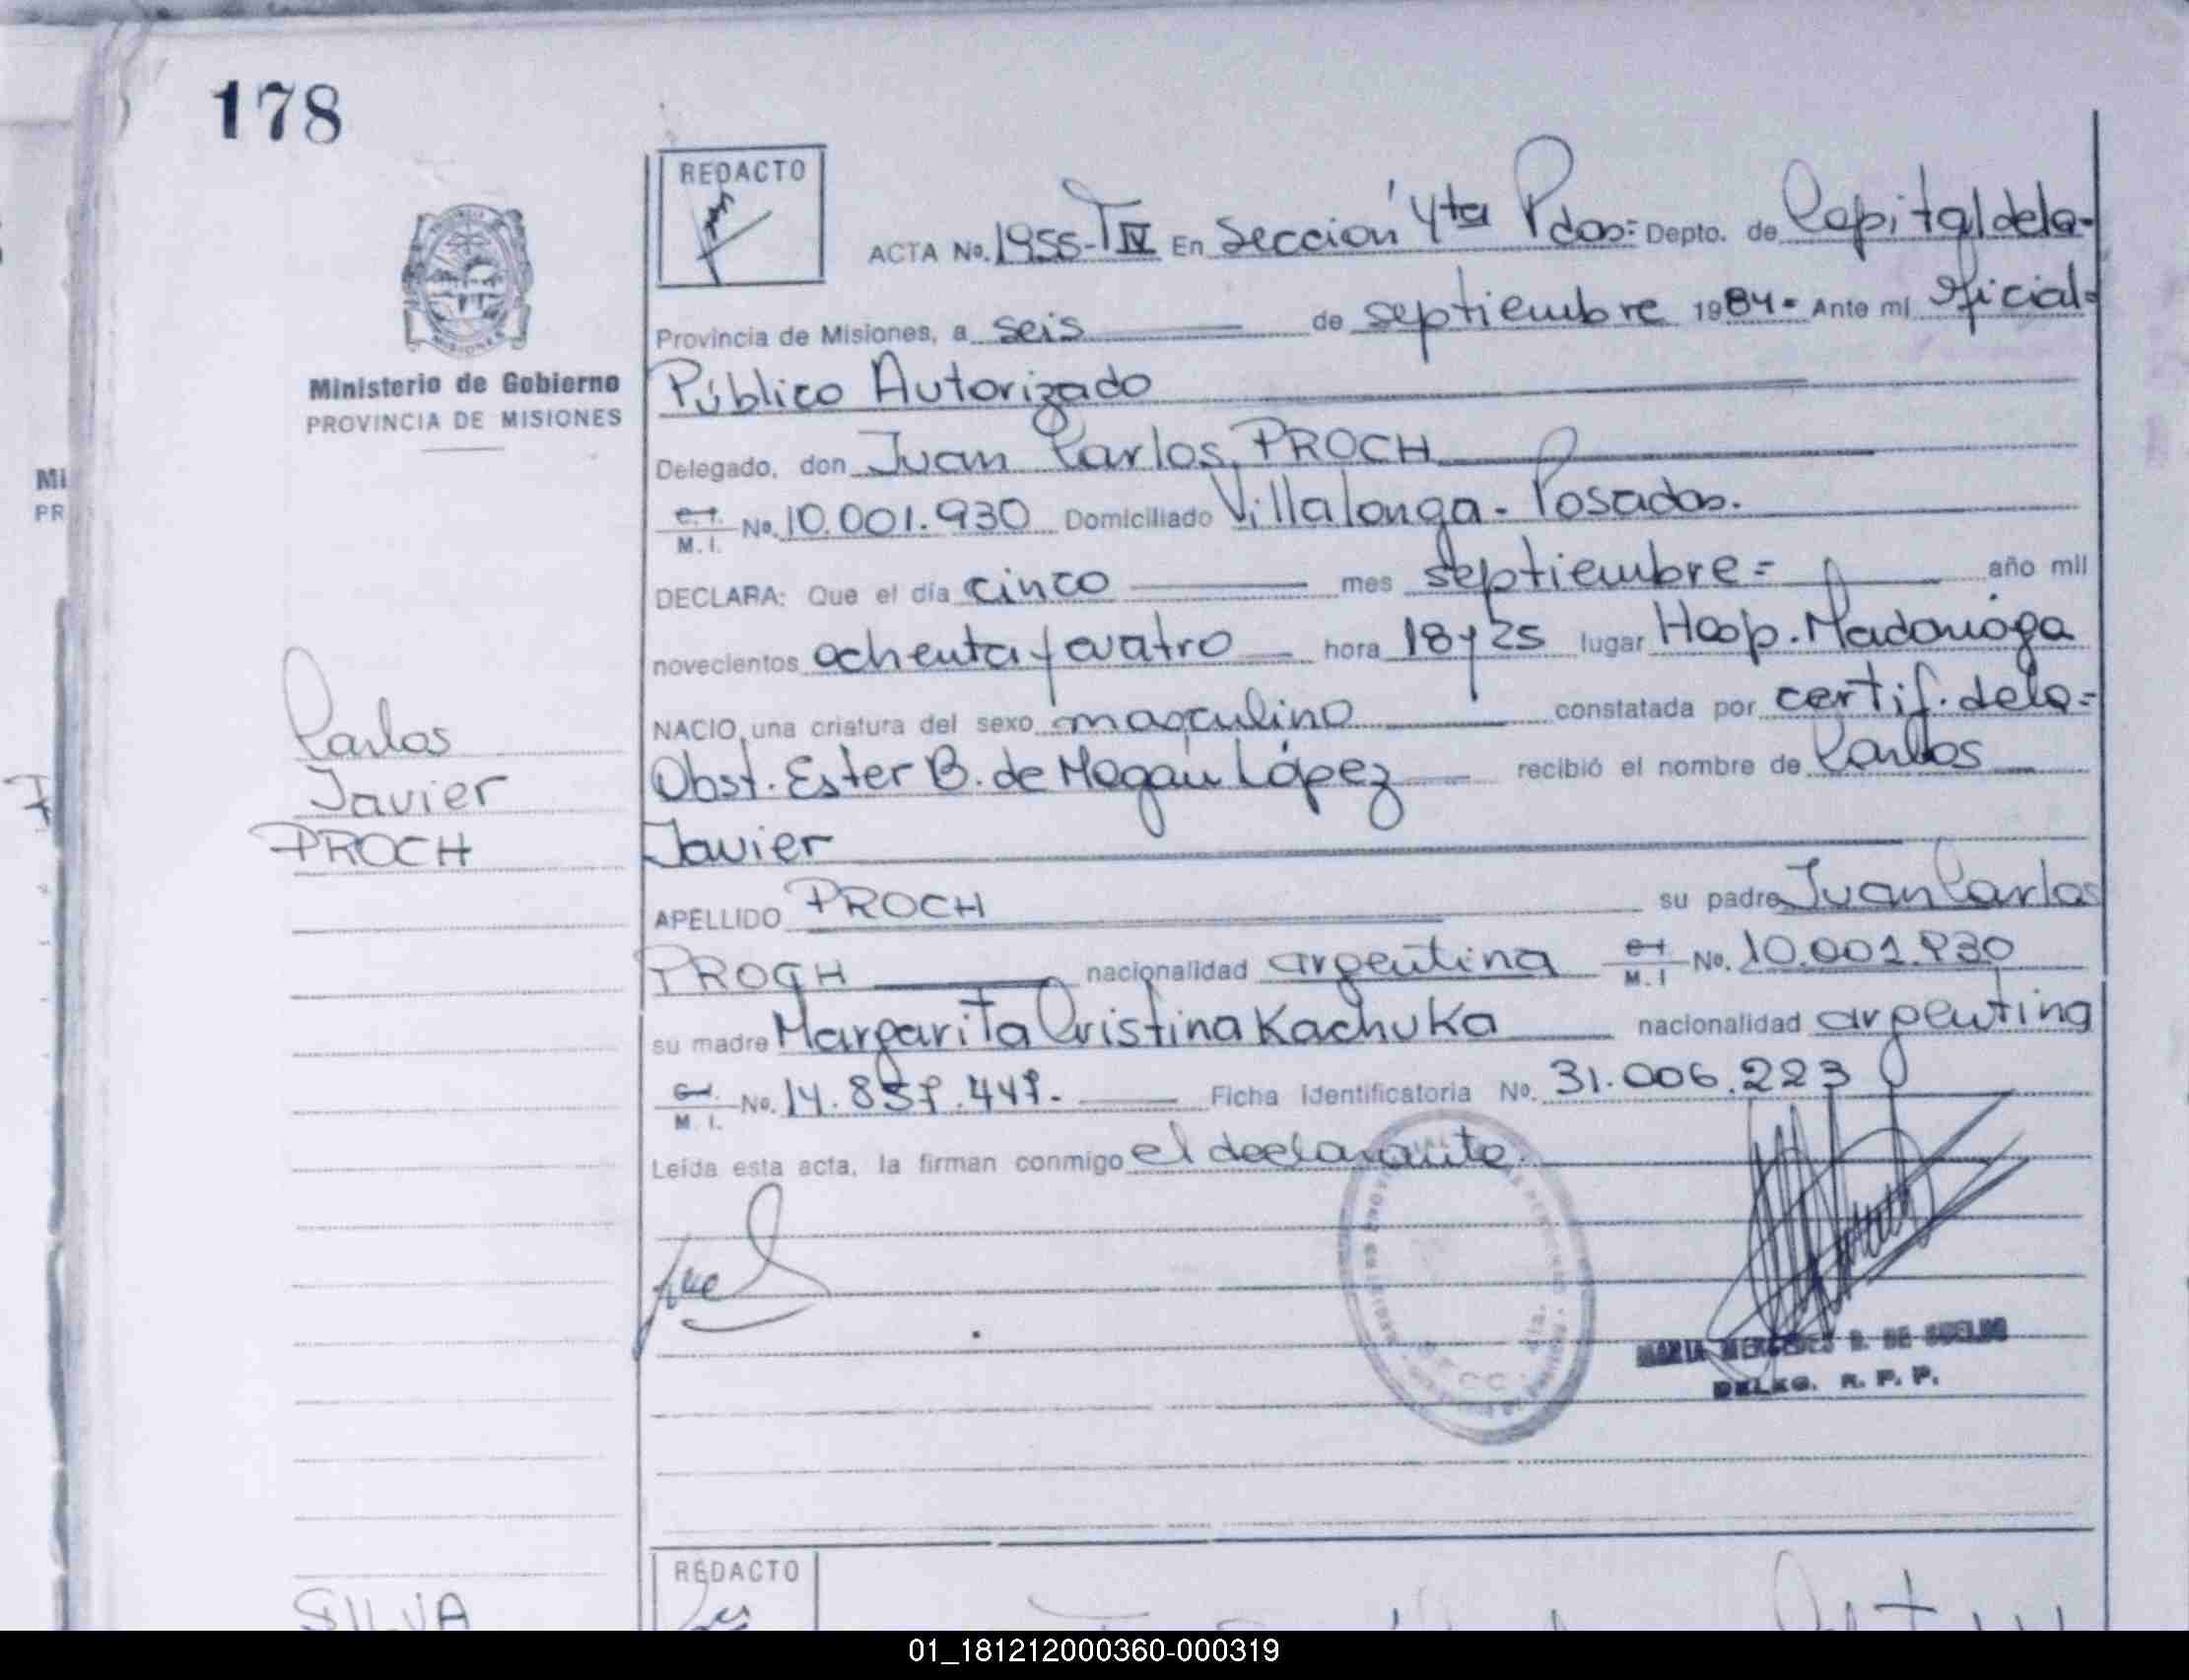 178
REDACTO
ACTA No. 1955-T IV En Sección 4ta Pdas= Depto. de Capital de la-
Provincia de Misiones, a seis de septiembre 1984- Ante mi oficial=
Público Autorizado
Ministerio de Gobierno
PROVINCIA DE MISIONES
Delegado, don Juan Carlos PROCH
C.I. M. I. No. 10.001.930 Domiciliado Villalonga - Posadas.
DECLARA: Que el día cinco mes septiembre= año mil
novecientos ochenta y cuatro hora 18 y 25 lugar Hosp. Madariaga
NACIO una criatura del sexo masculino constatada por certif. de la=
Obst. Ester B. de López recibió el nombre de Carlos
Javier
Carlos
Javier
PROCH
APELLIDO PROCH su padre Juan Carlos
PROCH nacionalidad argentina C.I. M. I No. 10.001.930
su madre Margarita Cristina Kachuka nacionalidad argentina
C.I. M. I. No. Ficha Identificatoria No. 31.006.223
Leída esta acta, la firman conmigo el declarante.
MARIA MERCEDES B. DE SUELDO
DELEG. R. P. P.
REDACTO
SILVA
MI
PR
01_181212000360-000319